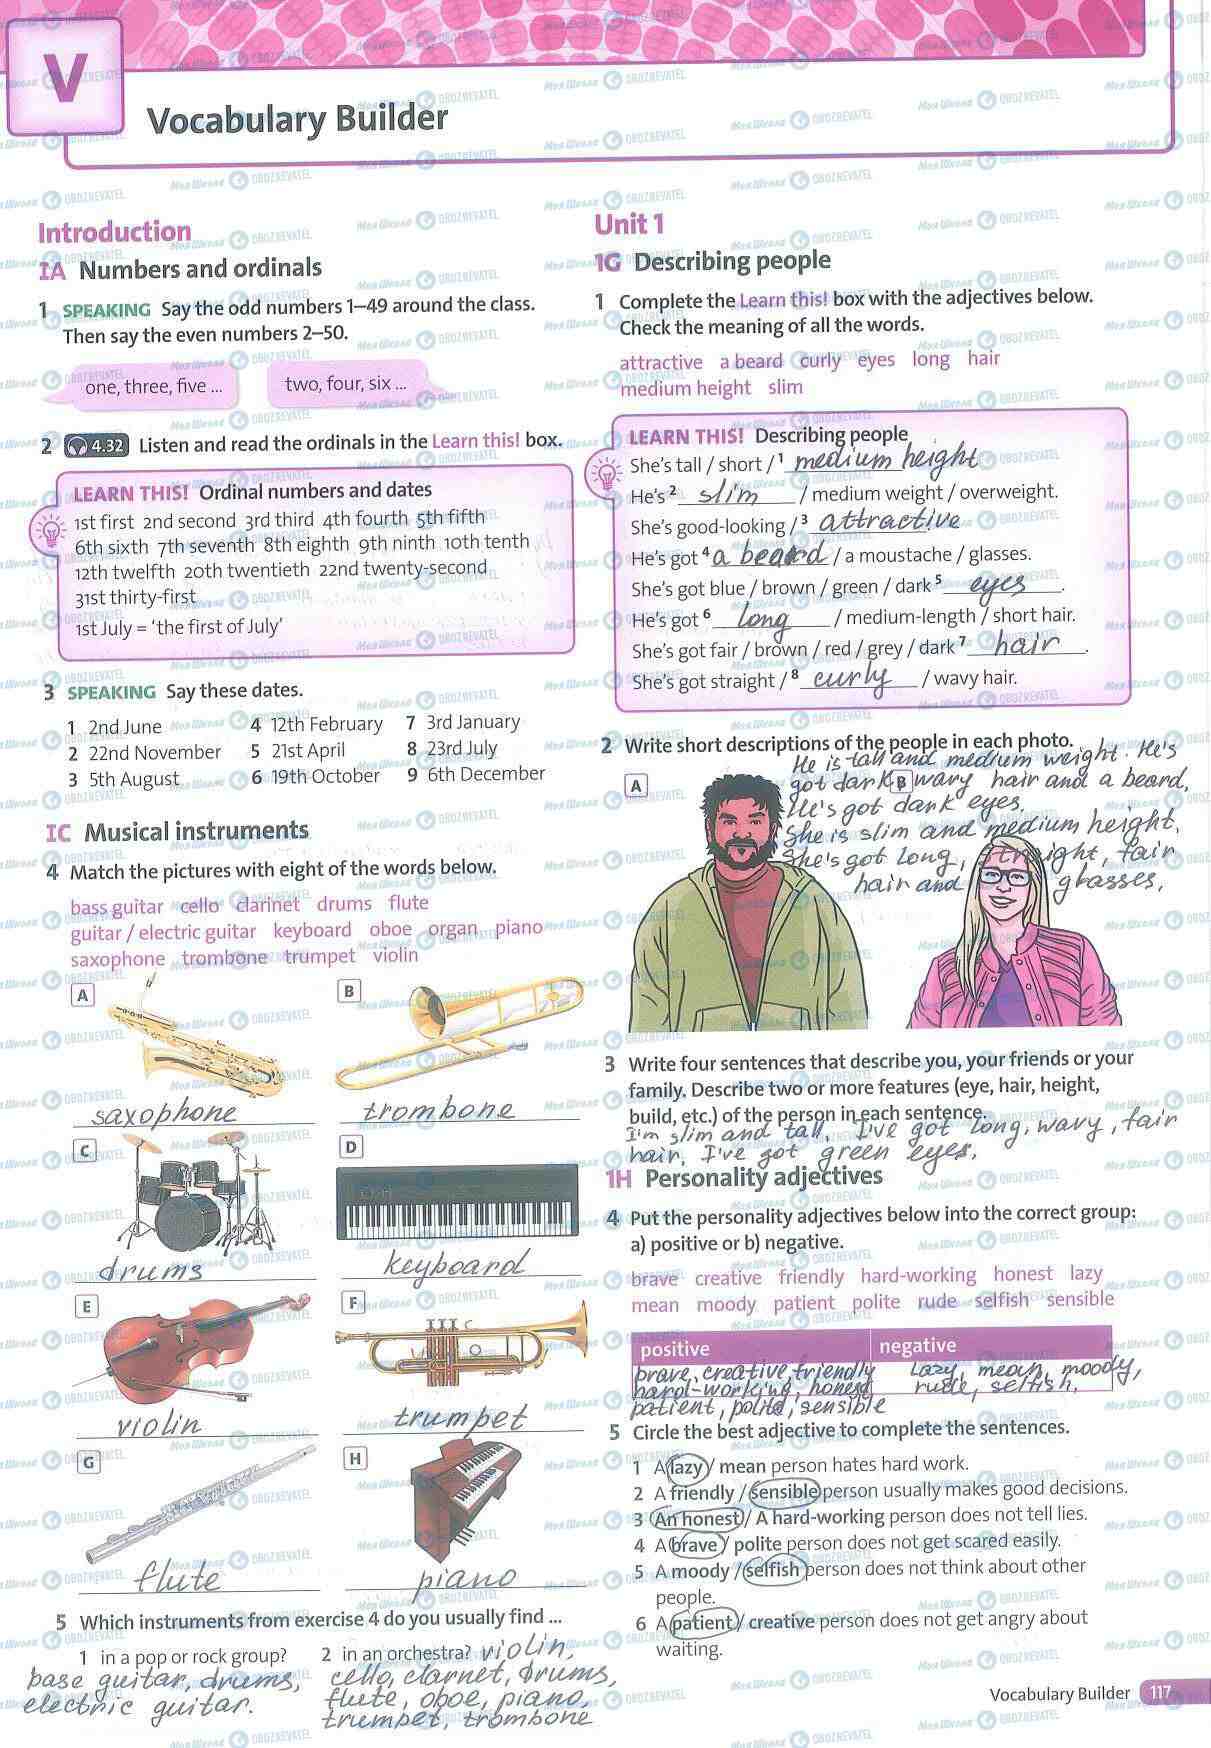 V
Vocabulary Builder
Introduction
IA Numbers and ordinals
1 SPEAKING Say the odd numbers 1–49 around the class.
Then say the even numbers 2–50.
one, three, five ...
two, four, six ...
2 4.32 Listen and read the ordinals in the Learn this! box.
LEARN THIS! Ordinal numbers and dates
1st first 2nd second 3rd third 4th fourth 5th fifth
6th sixth 7th seventh 8th eighth 9th ninth 10th tenth
12th twelfth 20th twentieth 22nd twenty-second
31st thirty-first
1st July = 'the first of July'
3 SPEAKING Say these dates.
1 2nd June 4 12th February 7 3rd January
2 22nd November 5 21st April 8 23rd July
3 5th August 6 19th October 9 6th December
IC Musical instruments
4 Match the pictures with eight of the words below.
bass guitar cello clarinet drums flute
guitar / electric guitar keyboard oboe organ piano
saxophone trombone trumpet violin
A
B
saxophone
trombone
C
D
drums
keyboard
E
F
violin
trumpet
G
H
flute
piano
5 Which instruments from exercise 4 do you usually find ...
1 in a pop or rock group?
base guitar, drums,
electric guitar.
2 in an orchestra? violin,
cello, clarnet, drums,
flute, oboe, piano,
trumpet, trombone
Unit 1
1G Describing people
1 Complete the Learn this! box with the adjectives below.
Check the meaning of all the words.
attractive a beard curly eyes long hair
medium height slim
LEARN THIS! Describing people
She's tall / short / 1 medium height
He's 2 slim / medium weight / overweight.
She's good-looking / 3 attractive.
He's got 4 a beard / a moustache / glasses.
She's got blue / brown / green / dark 5 eyes.
He's got 6 long / medium-length / short hair.
She's got fair / brown / red / grey / dark 7 hair.
She's got straight / 8 curly / wavy hair.
2 Write short descriptions of the people in each photo.
He is tall and medium weight. He's
A
got dark, wavy hair and a beard,
B
He's got dark eyes.
She is slim and medium height.
She's got long, straight, fair
hair and glasses.
3 Write four sentences that describe you, your friends or your
family. Describe two or more features (eye, hair, height,
build, etc.) of the person in each sentence.
I'm slim and tall. I've got long, wavy, fair
hair. I've got green eyes.
1H Personality adjectives
4 Put the personality adjectives below into the correct group:
a) positive or b) negative.
brave creative friendly hard-working honest lazy
mean moody patient polite rude selfish sensible
positive negative
brave, creative, friendly lazy, mean, moody,
hard-working, honest rude, selfish.
patient, polite, sensible
5 Circle the best adjective to complete the sentences.
1 A lazy / mean person hates hard work.
2 A friendly / sensible person usually makes good decisions.
3 An honest / A hard-working person does not tell lies.
4 A brave / polite person does not get scared easily.
5 A moody / selfish person does not think about other
people.
6 A patient / creative person does not get angry about
waiting.
Vocabulary Builder 117
Моя Школа OBOZREVATEL